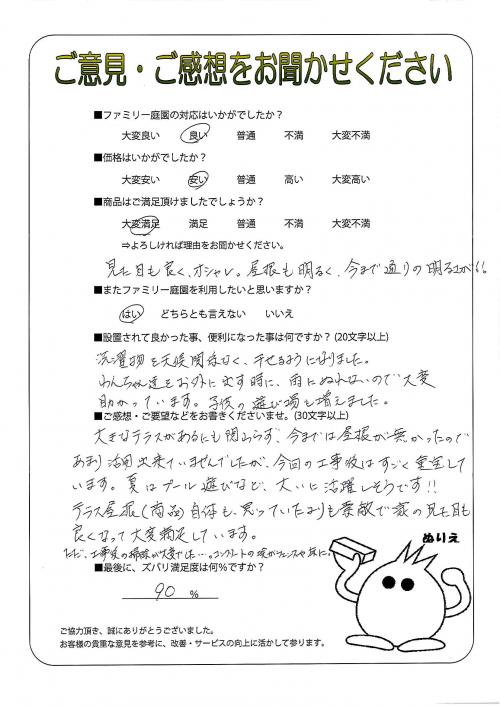 ご意見・ご感想をお聞かせください
■ファミリー庭園の対応はいかがでしたか？
大変良い 良い 普通 不満 大変不満
■価格はいかがでしたか？
大変安い 安い 普通 高い 大変高い
■商品はご満足頂けましたでしょうか？
大変満足 満足 普通 不満 大変不満
⇒よろしければ理由をお聞かせください。
見た目も良く、オシャレ。屋根も明るく、今まで通りの明るさが!!
■またファミリー庭園を利用したいと思いますか？
はい どちらとも言えない いいえ
■設置されて良かった事、便利になった事は何ですか？（20文字以上）
洗濯物を天候関係なく、干せるようになりました。
わんちゃん達をお外に出す時に、雨にぬれないので大変
助かっています。子供の遊び場も増えました。
■ご感想・ご要望などをお書きくださいませ。（30文字以上）
大きなテラスがあるにも関わらず、今までは屋根が無かったので
あまり活用出来ていませんでしたが、今回の工事後はすごく重宝して
います。夏はプール遊びなど、大いに活躍しそうです!!
テラス屋根（商品）自体も、思っていたよりも素敵で家の見た目も
良くなって大変満足しています。
ただ、工事後の掃除が大変でした…。コンクリートの灰がフェンスや床に。
■最後に、ズバリ満足度は何％ですか？
90 %
ぬりえ
ご協力頂き、誠にありがとうございました。
お客様の貴重な意見を参考に、改善・サービスの向上に活かして参ります。